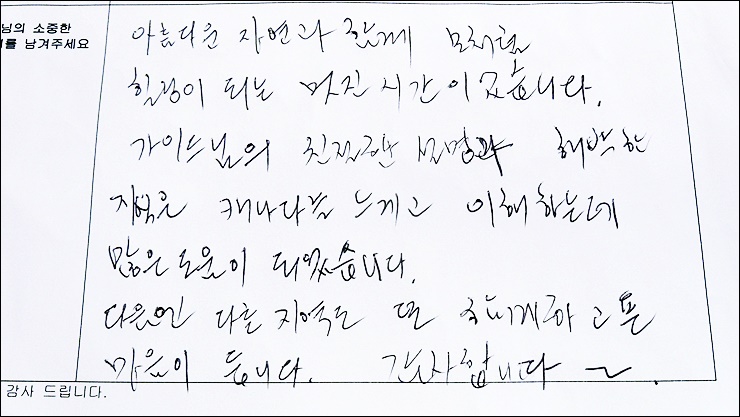 님의 소중한
를 남겨주세요
아름다운 자연과 함께 모처럼
힐링이 되는 멋진 시간이였습니다.
가이드님의 친절한 설명과 해박한
지식은 캐나다를 느끼고 이해하는데
많은 도움이 되었습니다.
다음엔 다른 지역도 또 싶은
마음이 듭니다. 감사합니다 ~.
감사 드립니다.